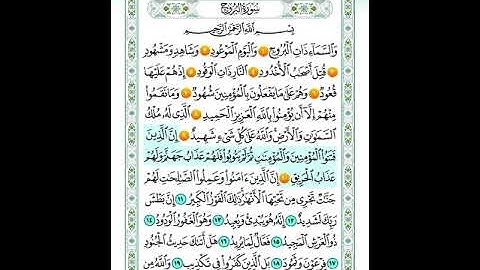 سُورَةُ البُرُوجِ
بِسْمِ اللَّهِ الرَّحْمَٰنِ الرَّحِيمِ
وَالسَّمَاءِ ذَاتِ الْبُرُوجِ ١ وَالْيَوْمِ الْمَوْعُودِ ٢ وَشَاهِدٍ وَمَشْهُودٍ
٣ قُتِلَ أَصْحَابُ الْأُخْدُودِ ٤ النَّارِ ذَاتِ الْوَقُودِ ٥ إِذْ هُمْ عَلَيْهَا
قُعُودٌ ٦ وَهُمْ عَلَىٰ مَا يَفْعَلُونَ بِالْمُؤْمِنِينَ شُهُودٌ ٧ وَمَا نَقَمُوا
مِنْهُمْ إِلَّا أَن يُؤْمِنُوا بِاللَّهِ الْعَزِيزِ الْحَمِيدِ ٨ الَّذِي لَهُ مُلْكُ
السَّمَاوَاتِ وَالْأَرْضِ وَاللَّهُ عَلَىٰ كُلِّ شَيْءٍ شَهِيدٌ ٩ إِنَّ الَّذِينَ
فَتَنُوا الْمُؤْمِنِينَ وَالْمُؤْمِنَاتِ ثُمَّ لَمْ يَتُوبُوا فَلَهُمْ عَذَابُ جَهَنَّمَ وَلَهُمْ
عَذَابُ الْحَرِيقِ ١٠ إِنَّ الَّذِينَ ءَامَنُوا وَعَمِلُوا الصَّالِحَاتِ لَهُمْ
جَنَّاتٌ تَجْرِي مِن تَحْتِهَا الْأَنْهَارُ ذَٰلِكَ الْفَوْزُ الْكَبِيرُ ١١ إِنَّ بَطْشَ
رَبِّكَ لَشَدِيدٌ ١٢ إِنَّهُ هُوَ يُبْدِئُ وَيُعِيدُ ١٣ وَهُوَ الْغَفُورُ الْوَدُودُ ١٤
ذُو الْعَرْشِ الْمَجِيدُ ١٥ فَعَّالٌ لِّمَا يُرِيدُ ١٦ هَلْ أَتَاكَ حَدِيثُ الْجُنُودِ
١٧ فِرْعَوْنَ وَثَمُودَ ١٨ بَلِ الَّذِينَ كَفَرُوا فِي تَكْذِيبٍ ١٩ وَاللَّهُ مِن